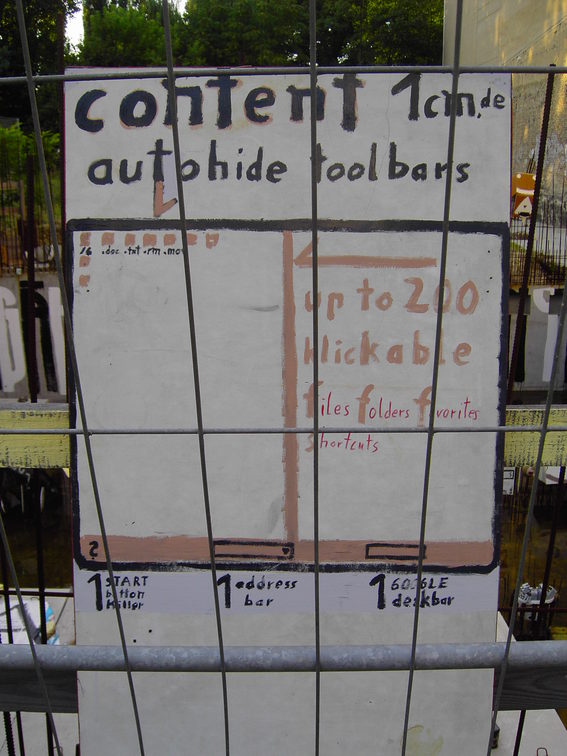 content 1cm.de
autohide toolbars
.doc .txt .rtm .mov
up to 200
klickable
files folders favorites
shortcuts
1 START button killer
1 address bar
1 GOOGLE deskbar